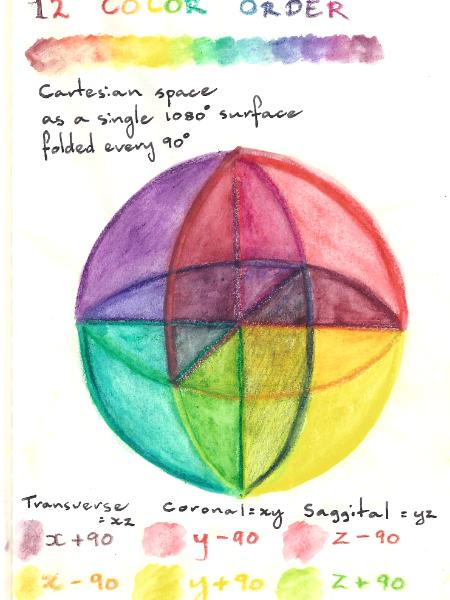 12 COLOR ORDER
Cartesian space
as a single 1080° surface
folded every 90°
Transverse Coronal=xy Saggital = yz
= xz
x+90 y-90 z-90
x-90 y+90 z+90